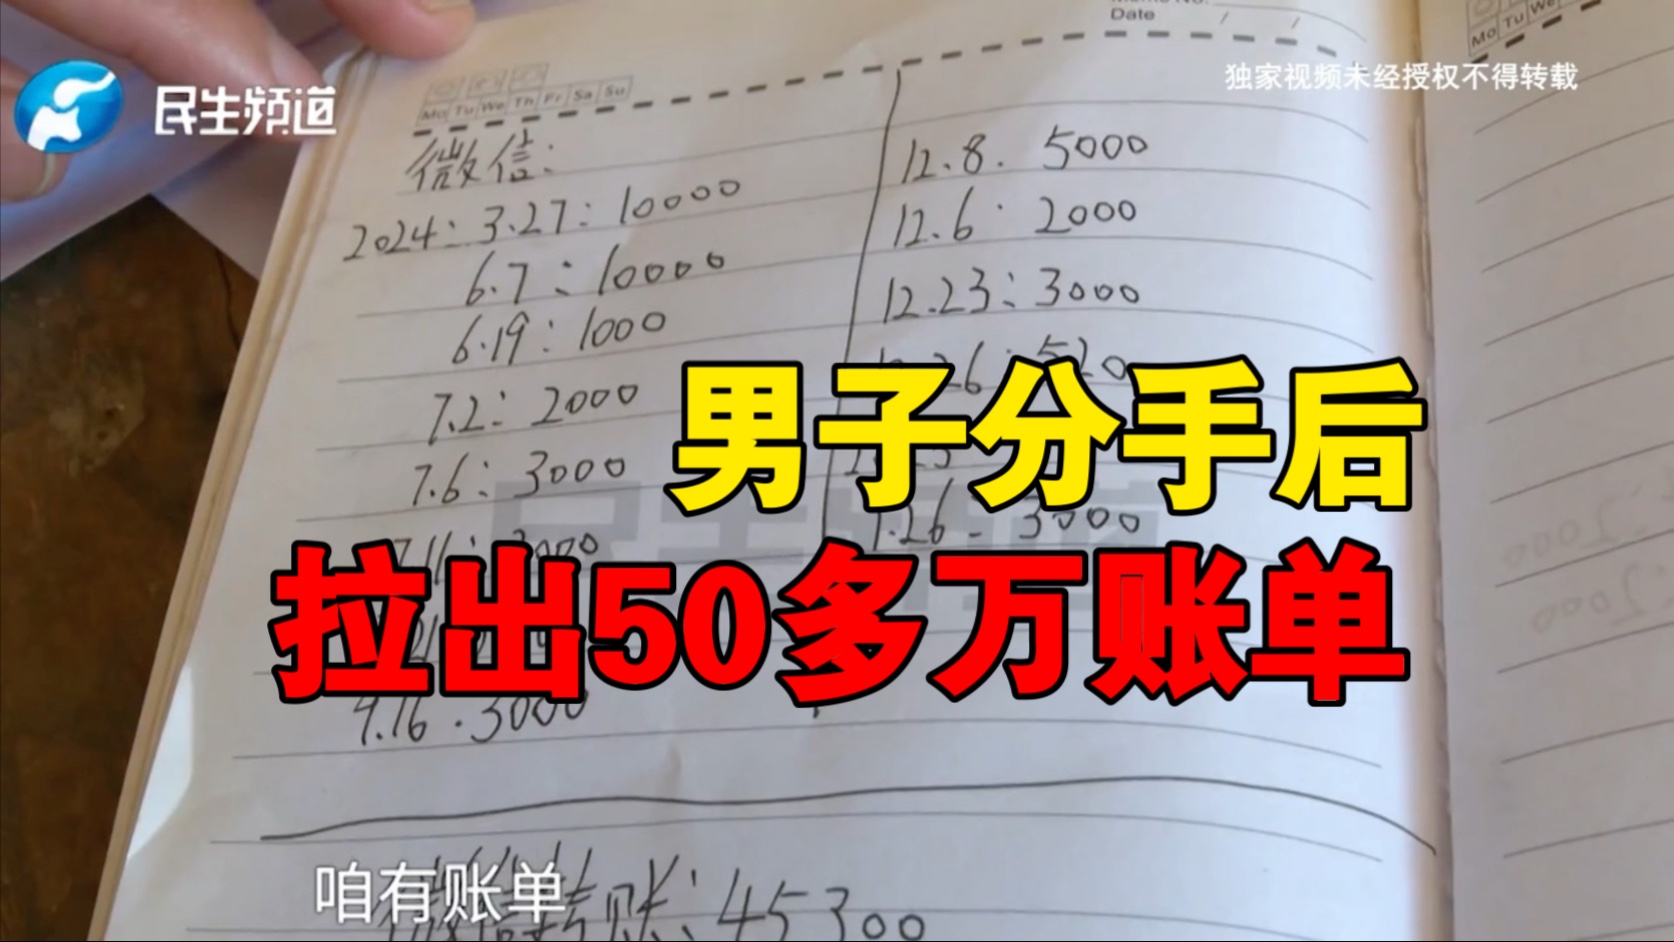 Date / /
独家视频未经授权不得转载
民生频道
Mo Tu We Th Fr Sa Su
Mo Tu We
微信:
2024: 3.27: 10000
6.7: 10000
6.19: 1000
7.2: 2000
7.6: 3000
7.11: 3000
9.16. 3000
12.8. 5000
12.6. 2000
12.23: 3000
26: 520
1.26 - 3000
男子分手后
拉出50多万账单
微信转账: 45300
咱有账单